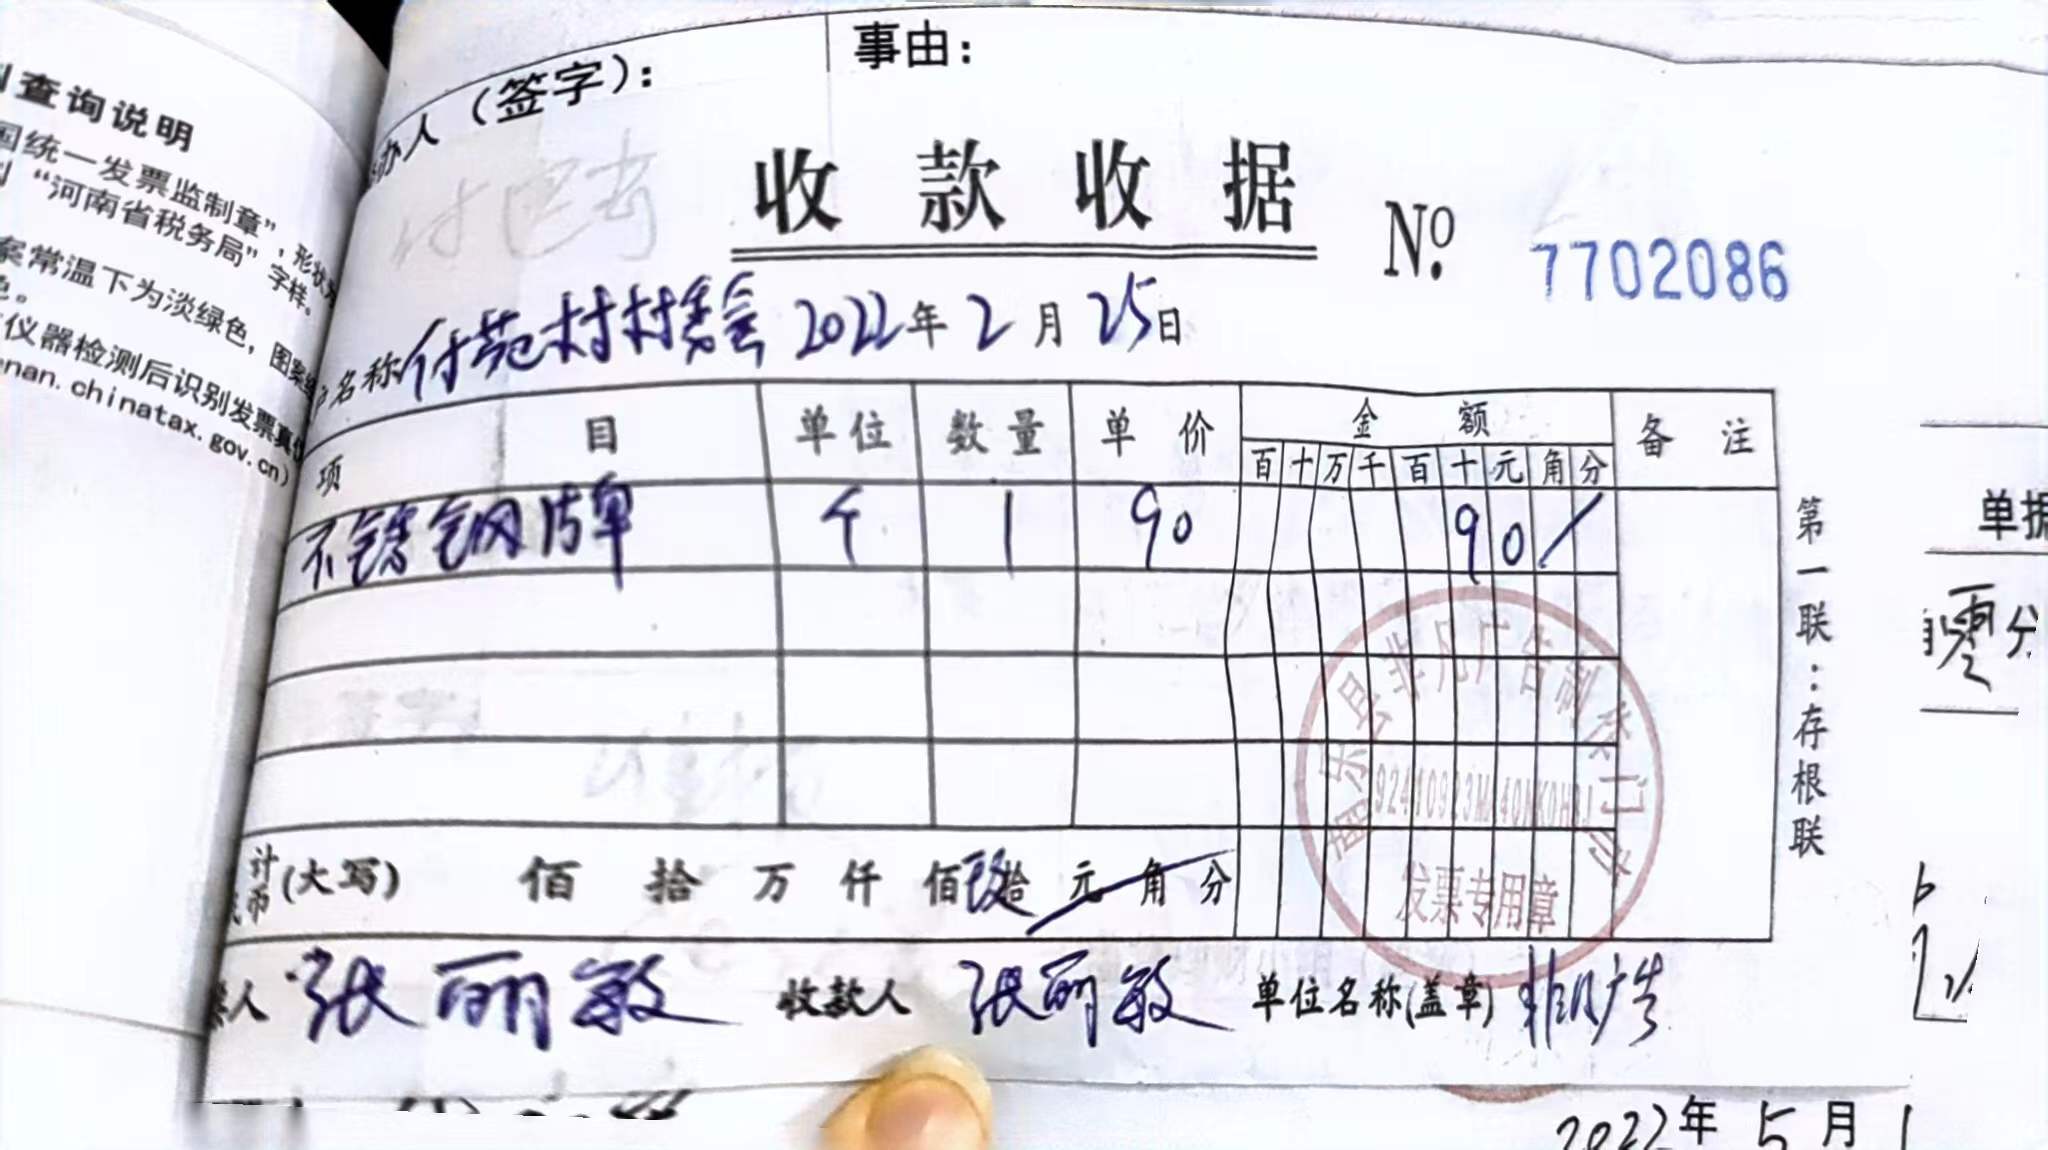 查询说明
国统一发票监制章”，形状为
“河南省税务局”字样。
案常温下为淡绿色，图案经
色。
仪器检测后识别发票真伪
enan.chinatax.gov.cn)
办人（签字）：
事由：
收款收据
No. 7702086
户名称 付苑村村委会 2022年2月25日
项目 单位 数量 单价 金额 备注
百十万千百十元角分
不锈钢牌 个 1 90 90/
计
币
(大写) 佰 拾 万 仟 佰 玖拾 元 角 分
人 张丽敏 收款人 张丽敏 单位名称(盖章) 非凡广告
第一联：存根联
南乐县非凡广告制作门市
发票专用章
单据
零分
2022年5月1